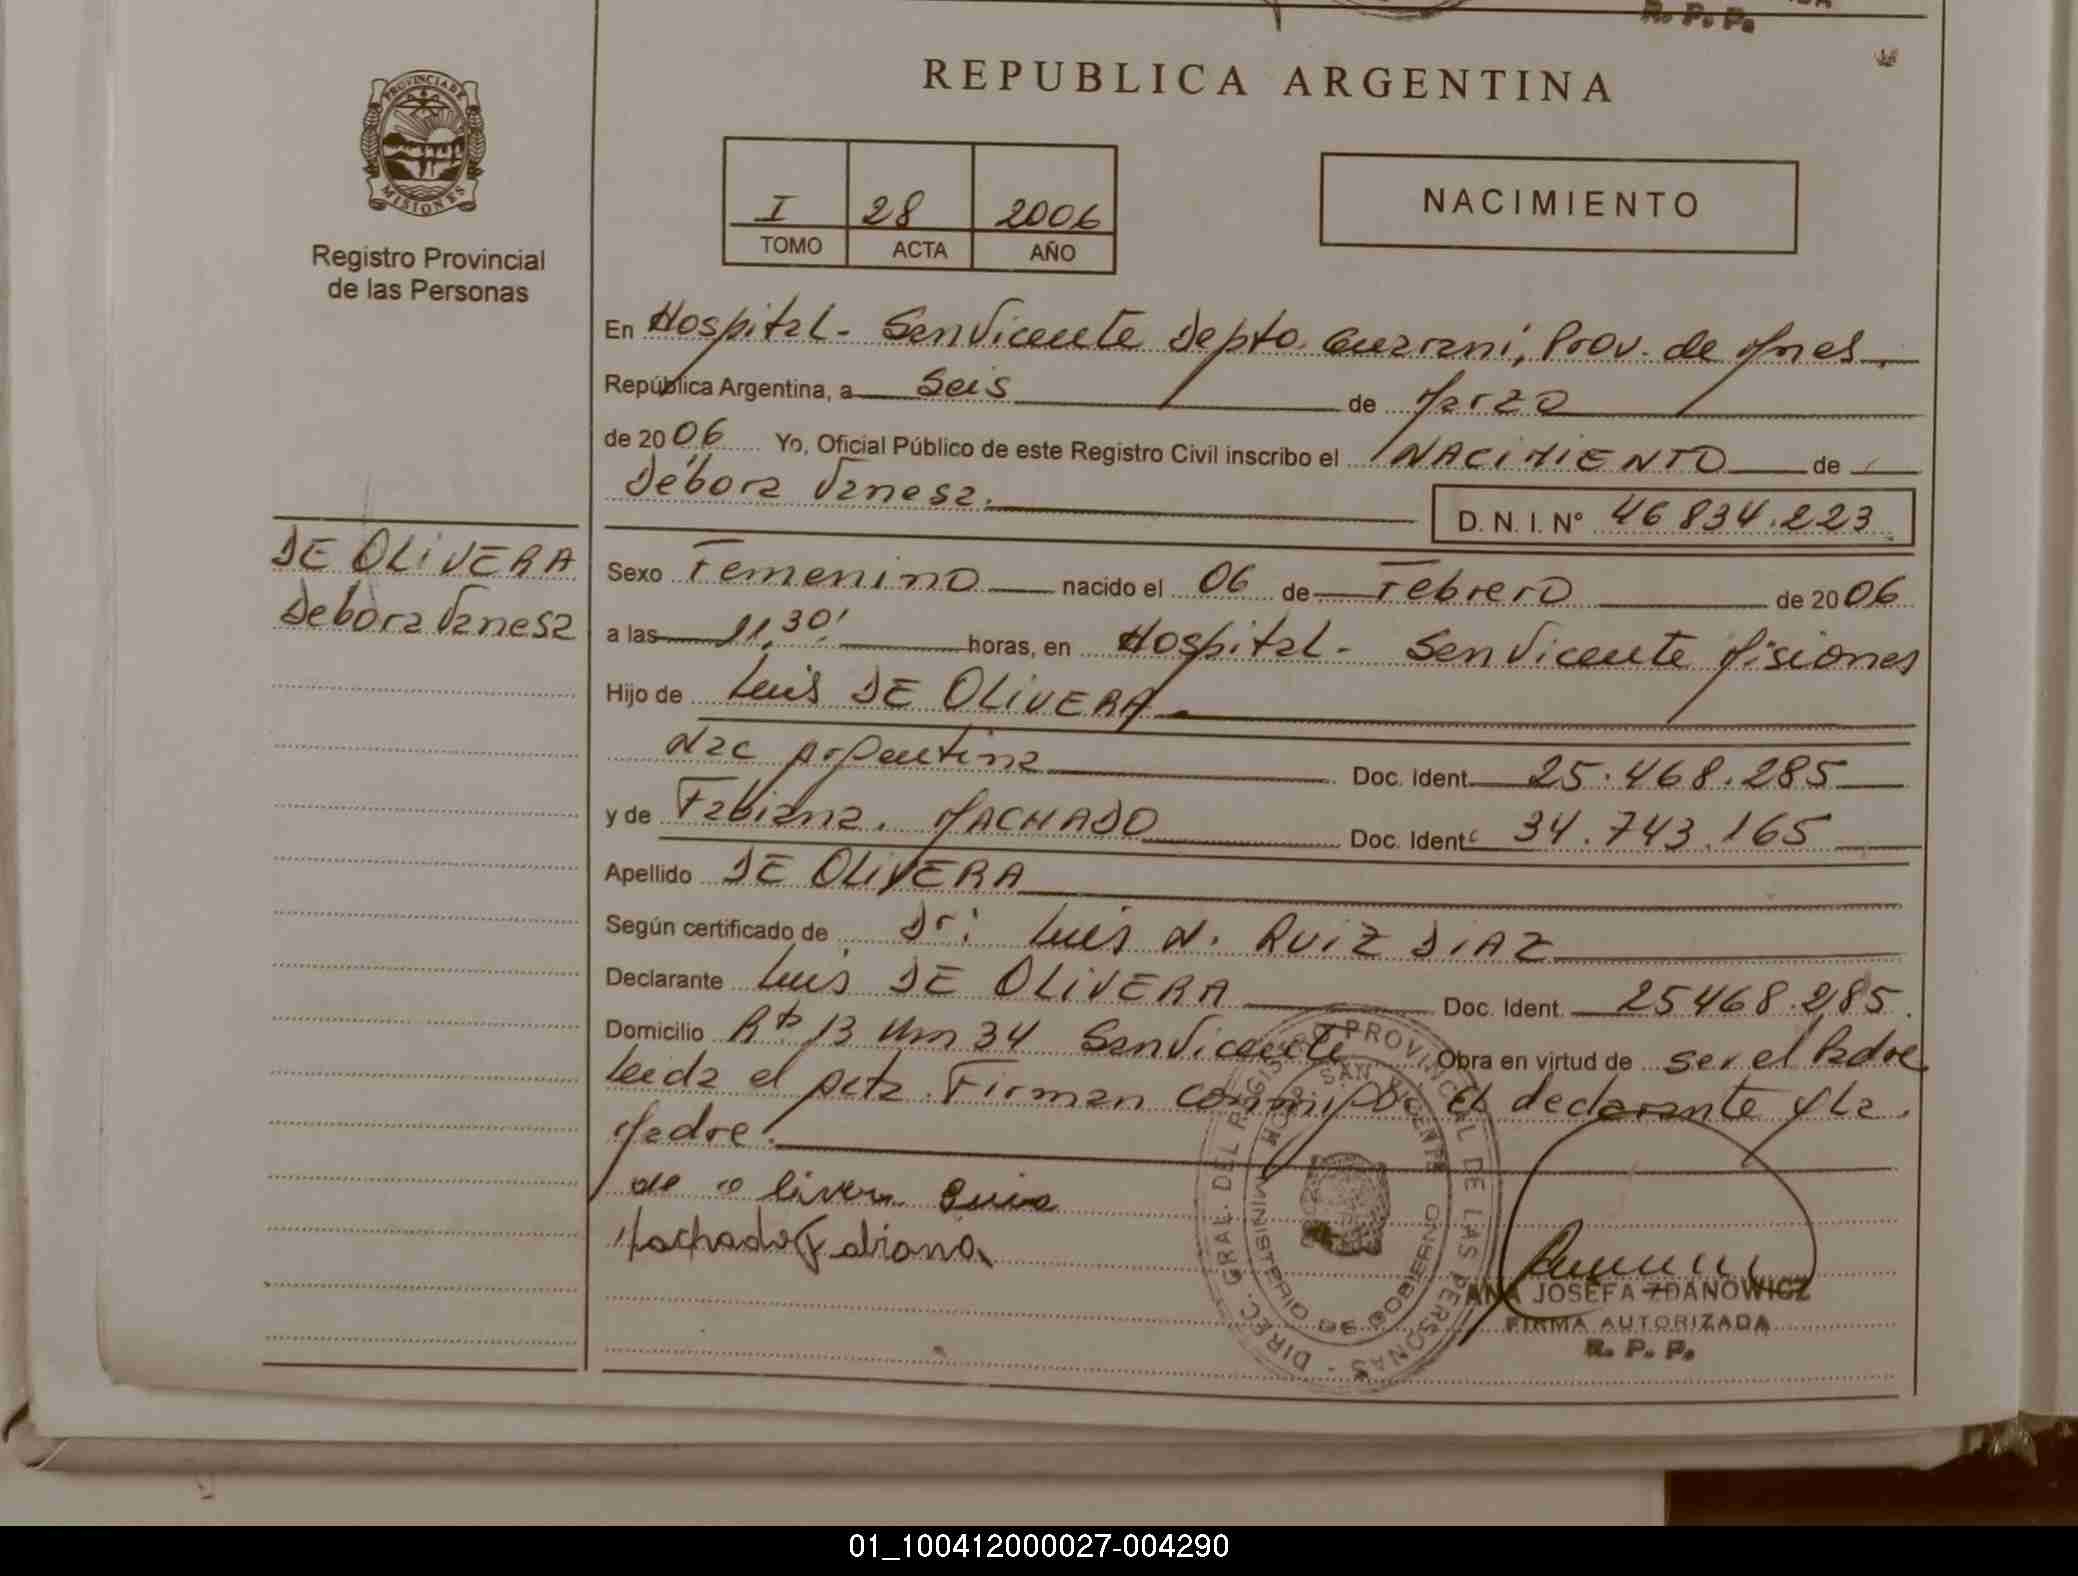 R. P. P.
REPUBLICA ARGENTINA
PROVINCIA DE MISIONES
Registro Provincial
de las Personas
I 28 2006
TOMO ACTA AÑO
NACIMIENTO
En Hospital - San Vicente Depto. Guarani, Prov. de Mnes,
República Argentina, a Seis de Marzo
de 2006 Yo, Oficial Público de este Registro Civil inscribo el NACIMIENTO de
Débora Vanesa.
D. N. I. N° 46 834.223
DE OLIVERA
Debora Vanesa
Sexo Femenino nacido el 06 de Febrero de 2006
a las 11,30' horas, en Hospital - San Vicente Misiones
Hijo de Luis DE OLIVERA
Nac Argentina Doc. Ident. 25.468.285
y de Fabiana. MACHADO Doc. Ident. 34.743.165
Apellido DE OLIVERA
Según certificado de Dr: Luis N. RUIZ DIAZ
Declarante Luis DE OLIVERA Doc. Ident. 25468.285.
Domicilio Rta 13 Km 34 San Vicente Obra en virtud de ser el Padre
Leida el Acta. Firman conmigo. El declarante y La
Madre.
de olivera Luis
Machado Fabiana
DIREC. GRAL. DEL REGISTRO PROVINCIAL DE LAS PERSONAS -
HOSP. SAN VICENTE
MINISTERIO DE GOBIERNO
ANA JOSEFA ZDANOWICZ
FIRMA AUTORIZADA
R. P. P.
01_100412000027-004290